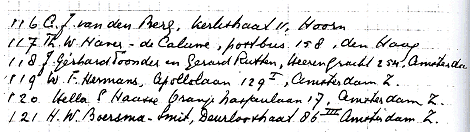 116 C. J. van den Berg, Kerkstraat 11, Hoorn
117 Th. W. Haver - de Caluwe, postbus 158, den Haag
118 J. Gerhard Toonder en Gerard Rutten, Heerengracht 254, Amsterda
119 W. F. Hermans, Apollolaan 129 I, Amsterdam Z.
120 Hella S Haasse Oranje Nassaulaan 17, Amsterdam Z.
121 H. W. Boersma - Smit, Deurloostraat 86 III Amsterdam. Z.